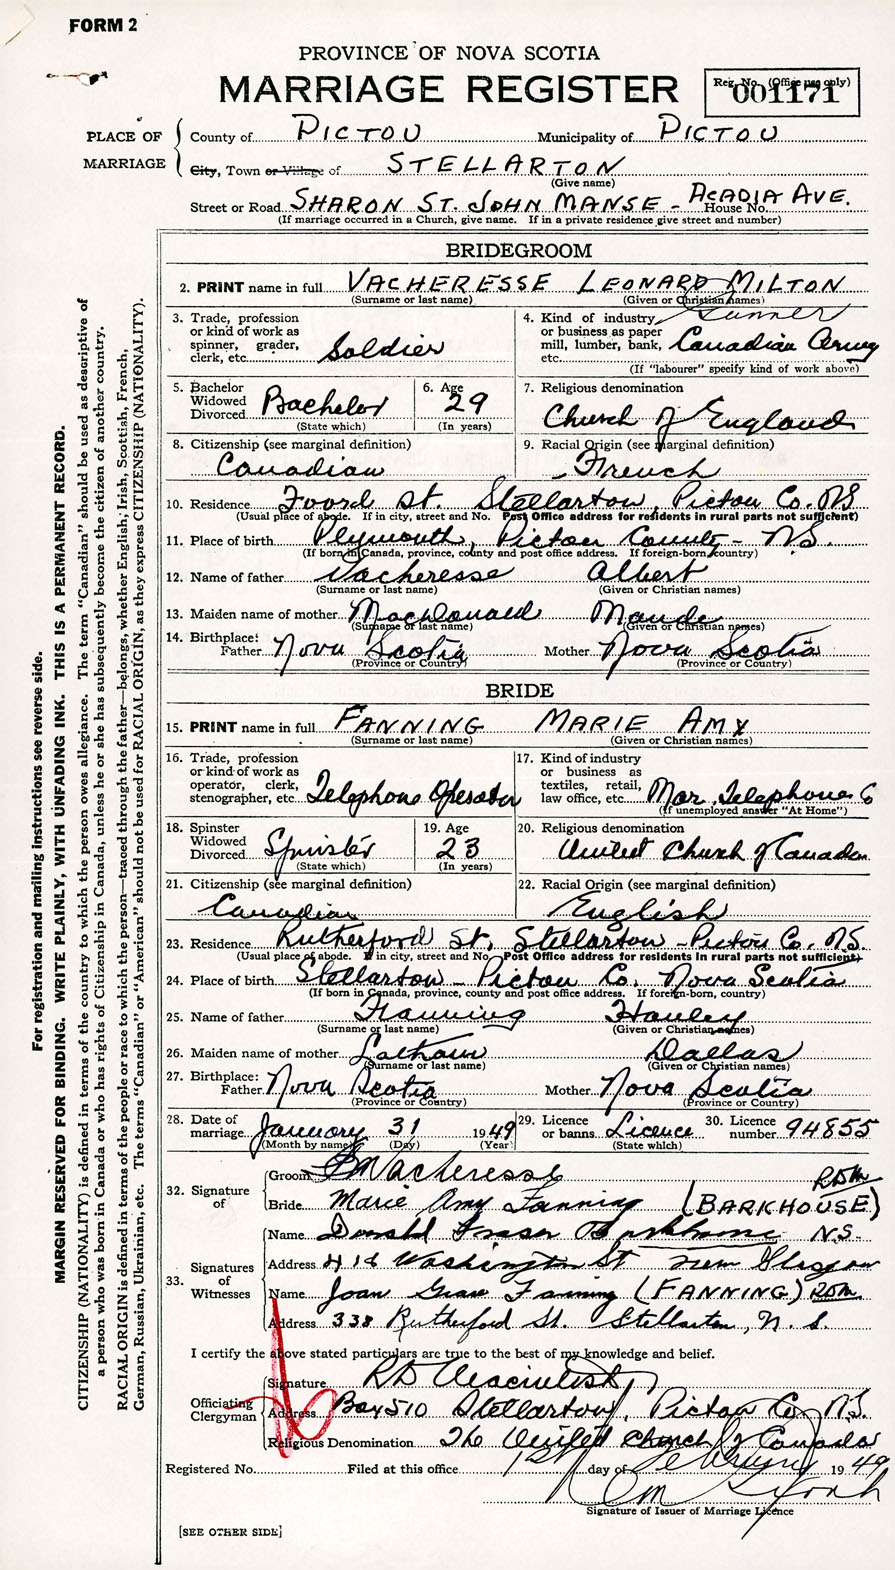 FORM 2
PROVINCE OF NOVA SCOTIA
MARRIAGE REGISTER
Reg. No. (Office use only)
001171
PLACE OF MARRIAGE
County of PICTOU Municipality of PICTOU
City, Town or Village of STELLARTON
(Give name)
Street or Road SHARON ST. JOHN MANSE - House No. ACADIA AVE.
(If marriage occurred in a Church, give name. If in a private residence give street and number)
BRIDEGROOM
2. PRINT name in full VACHERESSE LEONARD MILTON
(Surname or last name) (Given or Christian names)
3. Trade, profession or kind of work as spinner, grader, clerk, etc. Soldier
4. Kind of industry or business as paper mill, lumber, bank, etc. Gunner Canadian Army
(If "labourer" specify kind of work above)
5. Bachelor Widowed Divorced Bachelor
(State which)
6. Age 29
(In years)
7. Religious denomination Church of England
8. Citizenship (see marginal definition) Canadian
9. Racial Origin (see marginal definition) French
10. Residence Foord St. Stellarton, Pictou Co. NS
(Usual place of abode. If in city, street and No. Post Office address for residents in rural parts not sufficient)
11. Place of birth Plymouth, Pictou County - N.S.
(If born in Canada, province, county and post office address. If foreign-born, country)
12. Name of father Vacheresse Albert
(Surname or last name) (Given or Christian names)
13. Maiden name of mother MacDonald Maude
(Surname or last name) (Given or Christian names)
14. Birthplace: Father Nova Scotia Mother Nova Scotia
(Province or Country) (Province or Country)
BRIDE
15. PRINT name in full FANNING MARIE AMY
(Surname or last name) (Given or Christian names)
16. Trade, profession or kind of work as operator, clerk, stenographer, etc. Telephone Operator
17. Kind of industry or business as textiles, retail, law office, etc. Mar. Telephone Co
(If unemployed answer "At Home")
18. Spinster Widowed Divorced Spinster
(State which)
19. Age 23
(In years)
20. Religious denomination United Church of Canada
21. Citizenship (see marginal definition) Canadian
22. Racial Origin (see marginal definition) English
23. Residence Rutherford St. Stellarton - Pictou Co. N.S.
(Usual place of abode. If in city, street and No. Post Office address for residents in rural parts not sufficient)
24. Place of birth Stellarton - Pictou Co. Nova Scotia
(If born in Canada, province, county and post office address. If foreign-born, country)
25. Name of father Fanning Hanley
(Surname or last name) (Given or Christian names)
26. Maiden name of mother Dallas
(Surname or last name) (Given or Christian names)
27. Birthplace: Father Nova Scotia Mother Nova Scotia
(Province or Country) (Province or Country)
28. Date of marriage January 31 1949
(Month by name) (Day) (Year)
29. Licence or banns Licence
(State which)
30. Licence number 94855
32. Signature of
Groom Vacheresse
Bride Marie Amy Fanning (BARKHOUSE) RDM
33. Signatures of Witnesses
Name Donald Fraser Barkhouse N.S.
Address 418 Washington St New Glasgow
Name Joan Fanning (FANNING) RDM
Address 338 Rutherford St. Stellarton, N. S.
I certify the above stated particulars are true to the best of my knowledge and belief.
Officiating Clergyman
Signature RD Macintosh
Address Box 510 Stellarton, Pictou Co. N.S.
Religious Denomination The United Church of Canada
Registered No. Filed at this office day of February 1949
Signature of Issuer of Marriage Licence
[SEE OTHER SIDE]
For registration and mailing instructions see reverse side.
MARGIN RESERVED FOR BINDING. WRITE PLAINLY, WITH UNFADING INK. THIS IS A PERMANENT RECORD.
CITIZENSHIP (NATIONALITY) is defined in terms of the country to which the person owes allegiance. The term "Canadian" should be used as descriptive of
a person who was born in Canada or who has rights of Citizenship in Canada, unless he or she has subsequently become the citizen of another country.
RACIAL ORIGIN is defined in terms of the people or race to which the person—traced through the father—belongs, whether English, Irish, Scottish, French,
German, Russian, Ukrainian, etc. The terms "Canadian" or "American" should not be used for RACIAL ORIGIN, as they express CITIZENSHIP (NATIONALITY).